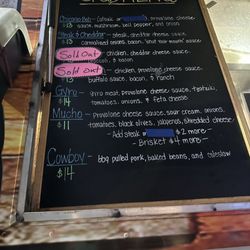 Chicago Beef - (steak or provolone cheese
$13 sauce, mushroom, bell pepper, and onion
Steak & Cheddar - steak, cheddar cheese sauce,
$13 caramelized onions, bacon, and
Sold Out - chicken, cheddar cheese sauce,
broccoli, & bacon
Sold Out - chicken, provolone cheese,
$13 buffalo sauce, bacon, & ranch
Gyro - gyro meat, provolone cheese, tzatziki,
$14 tomatoes, onions, & Feta cheese
Mucho - Provolone cheese, sour cream, onions,
$11 tomatoes, black olives, jalapenos, shredded cheese
- Add steak or $2 more -
- Brisket $4 more -
Cowboy - bbq pulled pork, baked beans, and coleslaw
$14